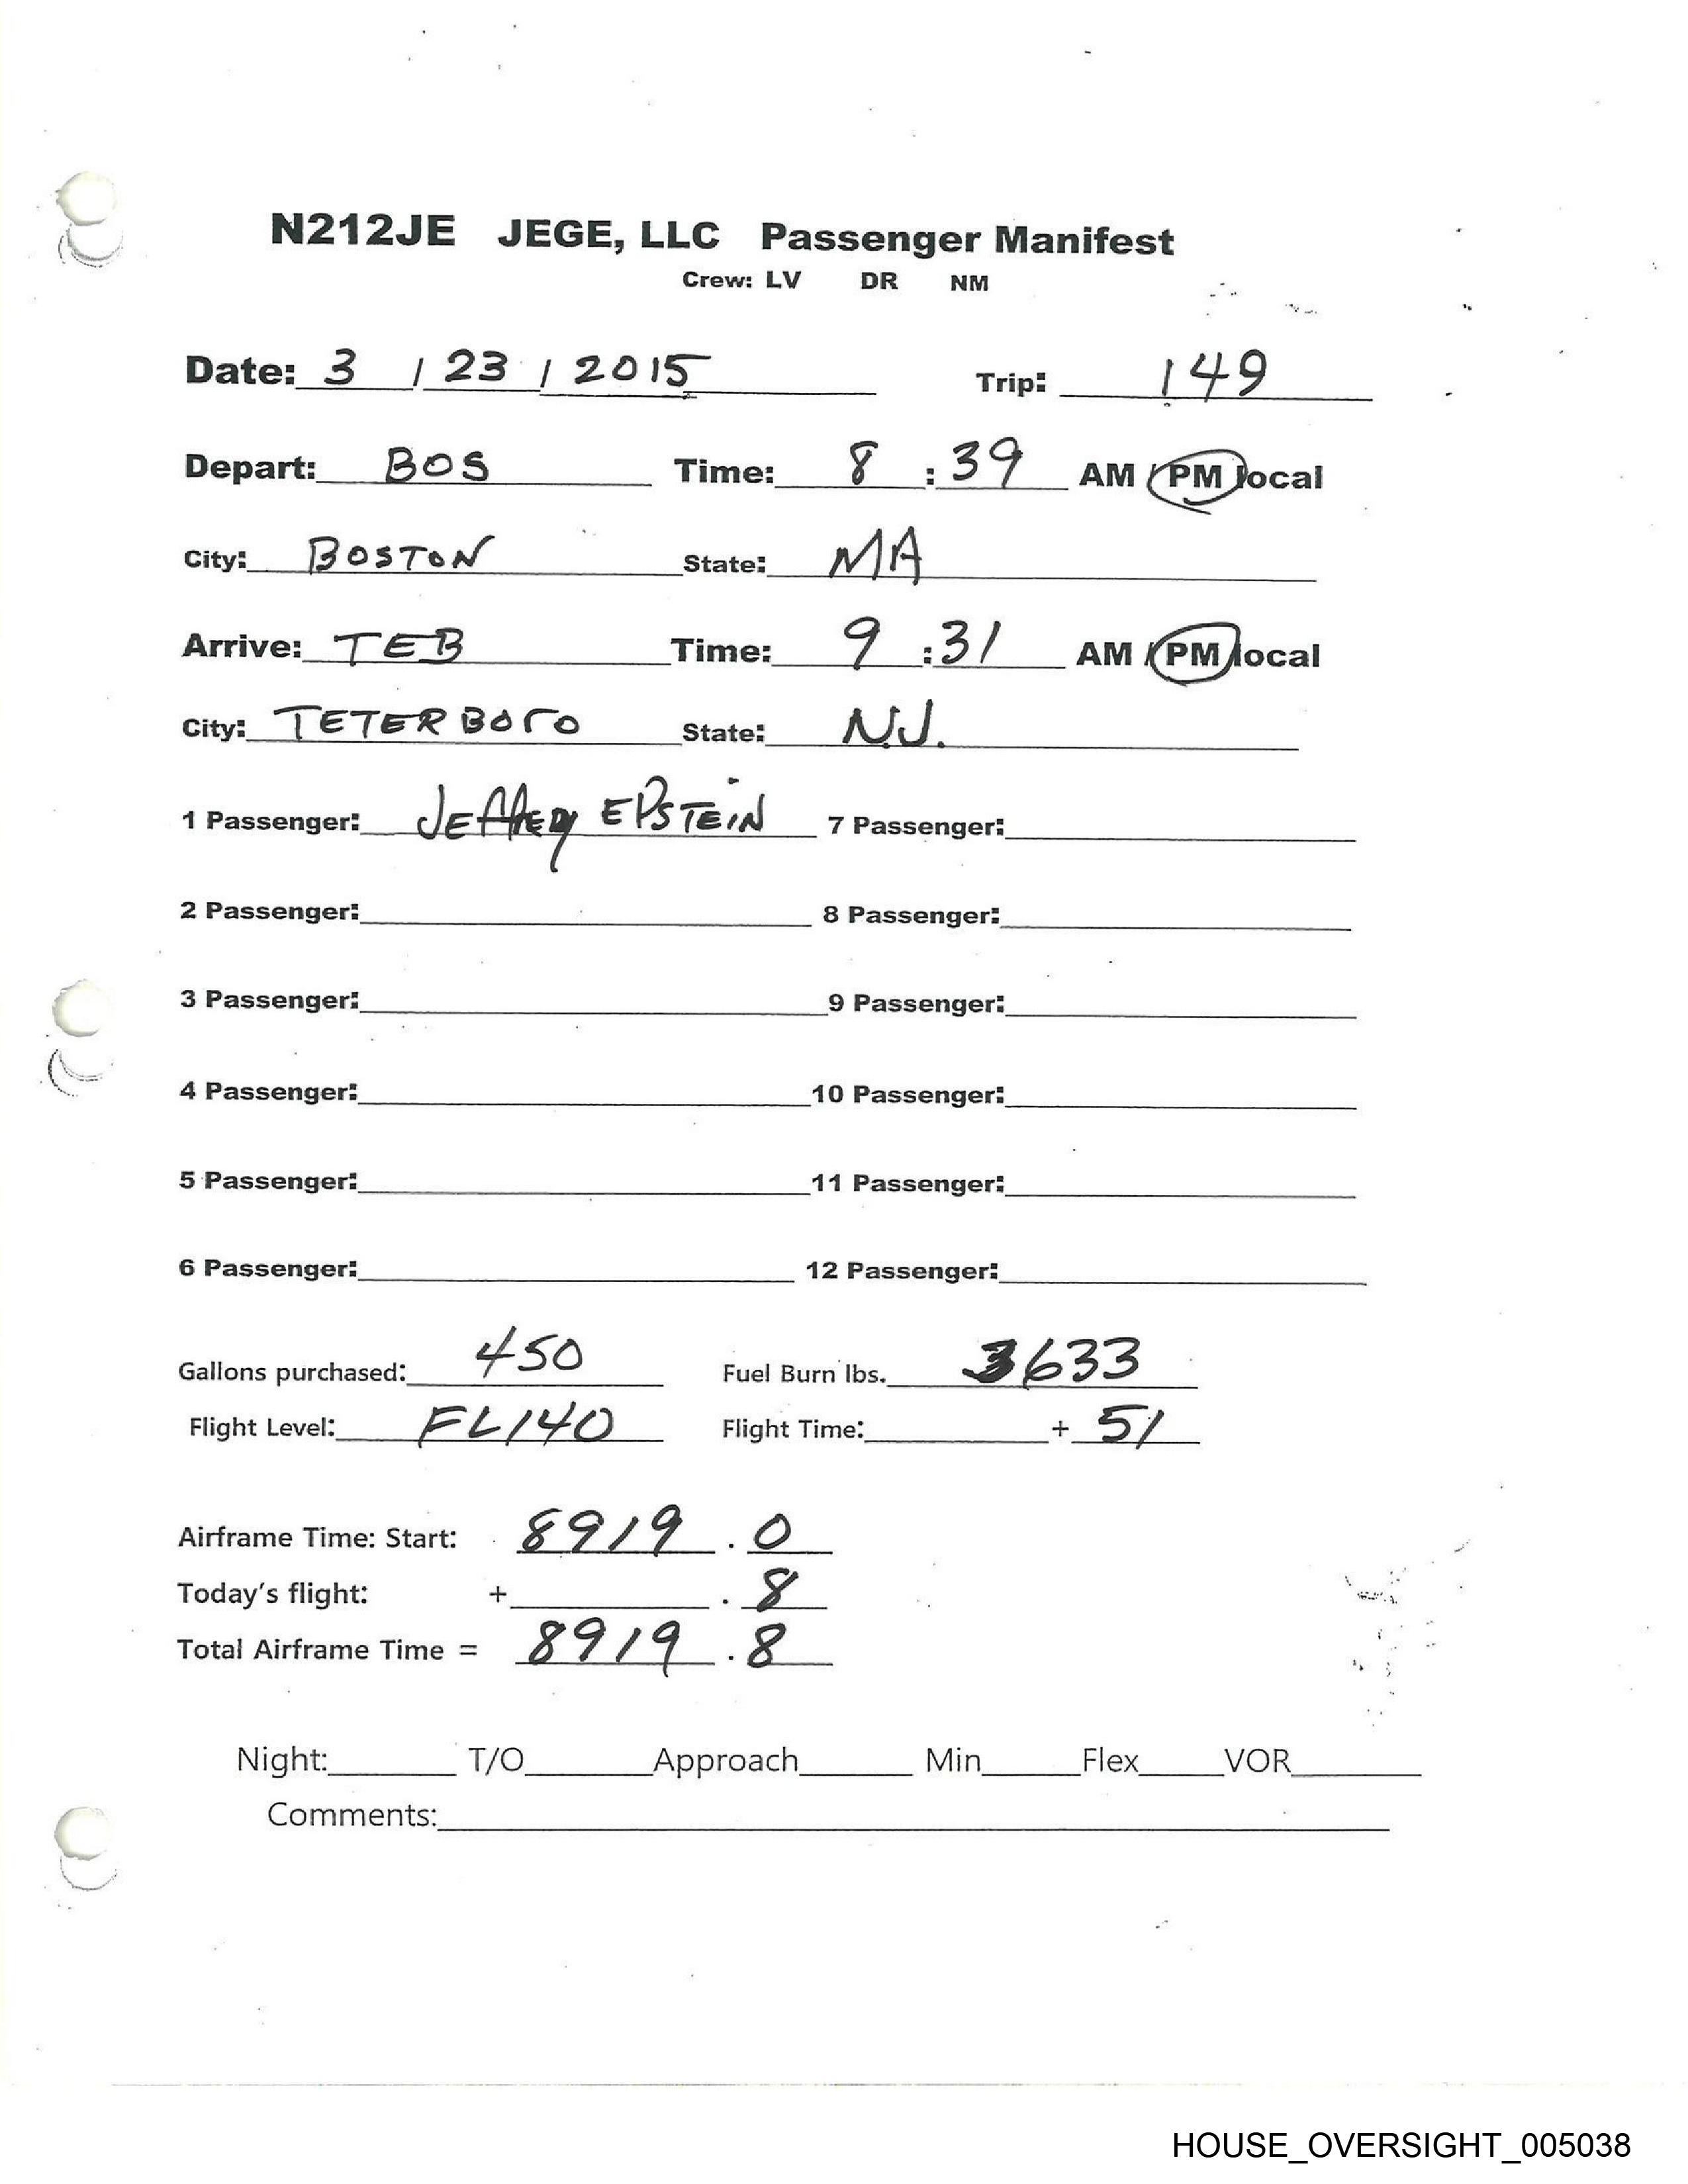 N212JE JEGE, LLC Passenger Manifest
Crew: LV DR NM
Date: 3 / 23 / 2015 Trip: 149
Depart: BOS Time: 8 : 39 AM / PM local
City: BOSTON State: MA
Arrive: TEB Time: 9 : 31 AM / PM local
City: TETERBORO State: N.J.
1 Passenger: JEFFREY EPSTEIN 7 Passenger:
2 Passenger: 8 Passenger:
3 Passenger: 9 Passenger:
4 Passenger: 10 Passenger:
5 Passenger: 11 Passenger:
6 Passenger: 12 Passenger:
Gallons purchased: 450 Fuel Burn lbs. 3633
Flight Level: FL140 Flight Time: + 51
Airframe Time: Start: 8919 . 0
Today's flight: + . 8
Total Airframe Time = 8919 . 8
Night: T/O Approach Min Flex VOR
Comments:
HOUSE_OVERSIGHT_005038